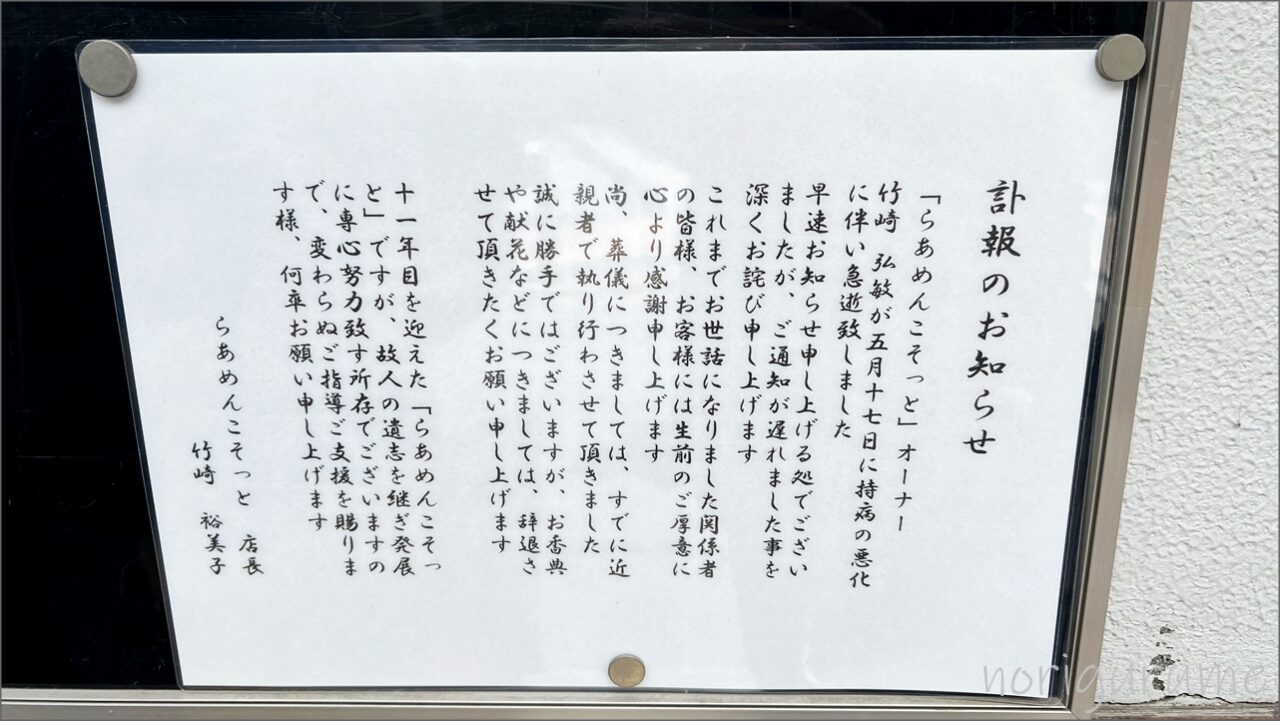 訃報のお知らせ
「らあめんこそっと」オーナー
竹崎 弘敏が五月十七日に持病の悪化
に伴い急逝致しました
早速お知らせ申し上げる処でござい
ましたが、ご通知が遅れました事を
深くお詫び申し上げます
これまでお世話になりました関係者
の皆様、お客様には生前のご厚意に
心より感謝申し上げます
尚、葬儀につきましては、すでに近
親者で執り行わさせて頂きました
誠に勝手ではございますが、お香典
や献花などにつきましては、辞退さ
せて頂きたくお願い申し上げます
十一年目を迎えた「らあめんこそっ
と」ですが、故人の遺志を継ぎ発展
に専心努力致す所存でございますの
で、変わらぬご指導ご支援を賜りま
す様、何卒お願い申し上げます
らあめんこそっと 店長
竹崎 裕美子
noriguramo